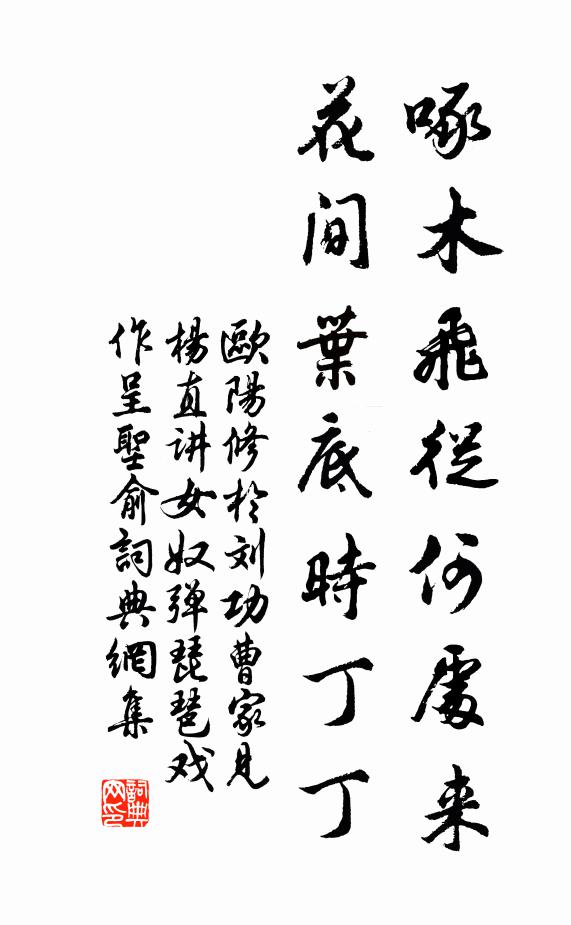 啄木飛從何處来
花間葉底時丁丁
歐陽修於刘功曹家見
楊直讲女奴弹琵琶戏
作呈聖俞詞典網集
詞典
网印